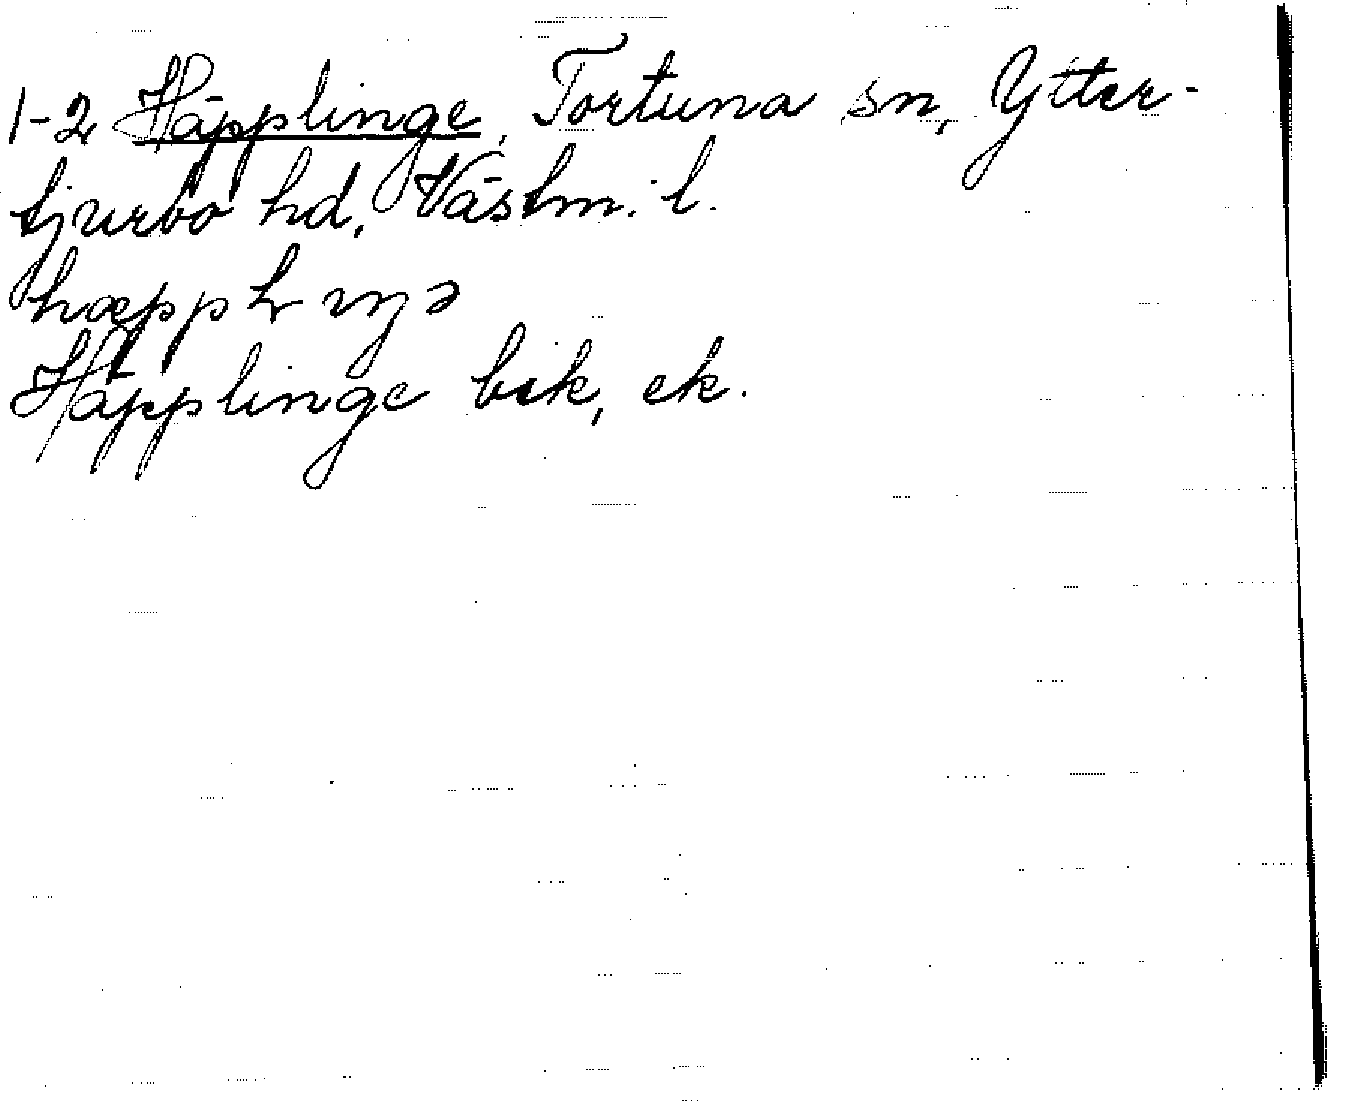 1-2 Häpplinge, Tortuna sn, Ytter-
tjurbo hd, Västm. l.
Häpplinge bek, ek.